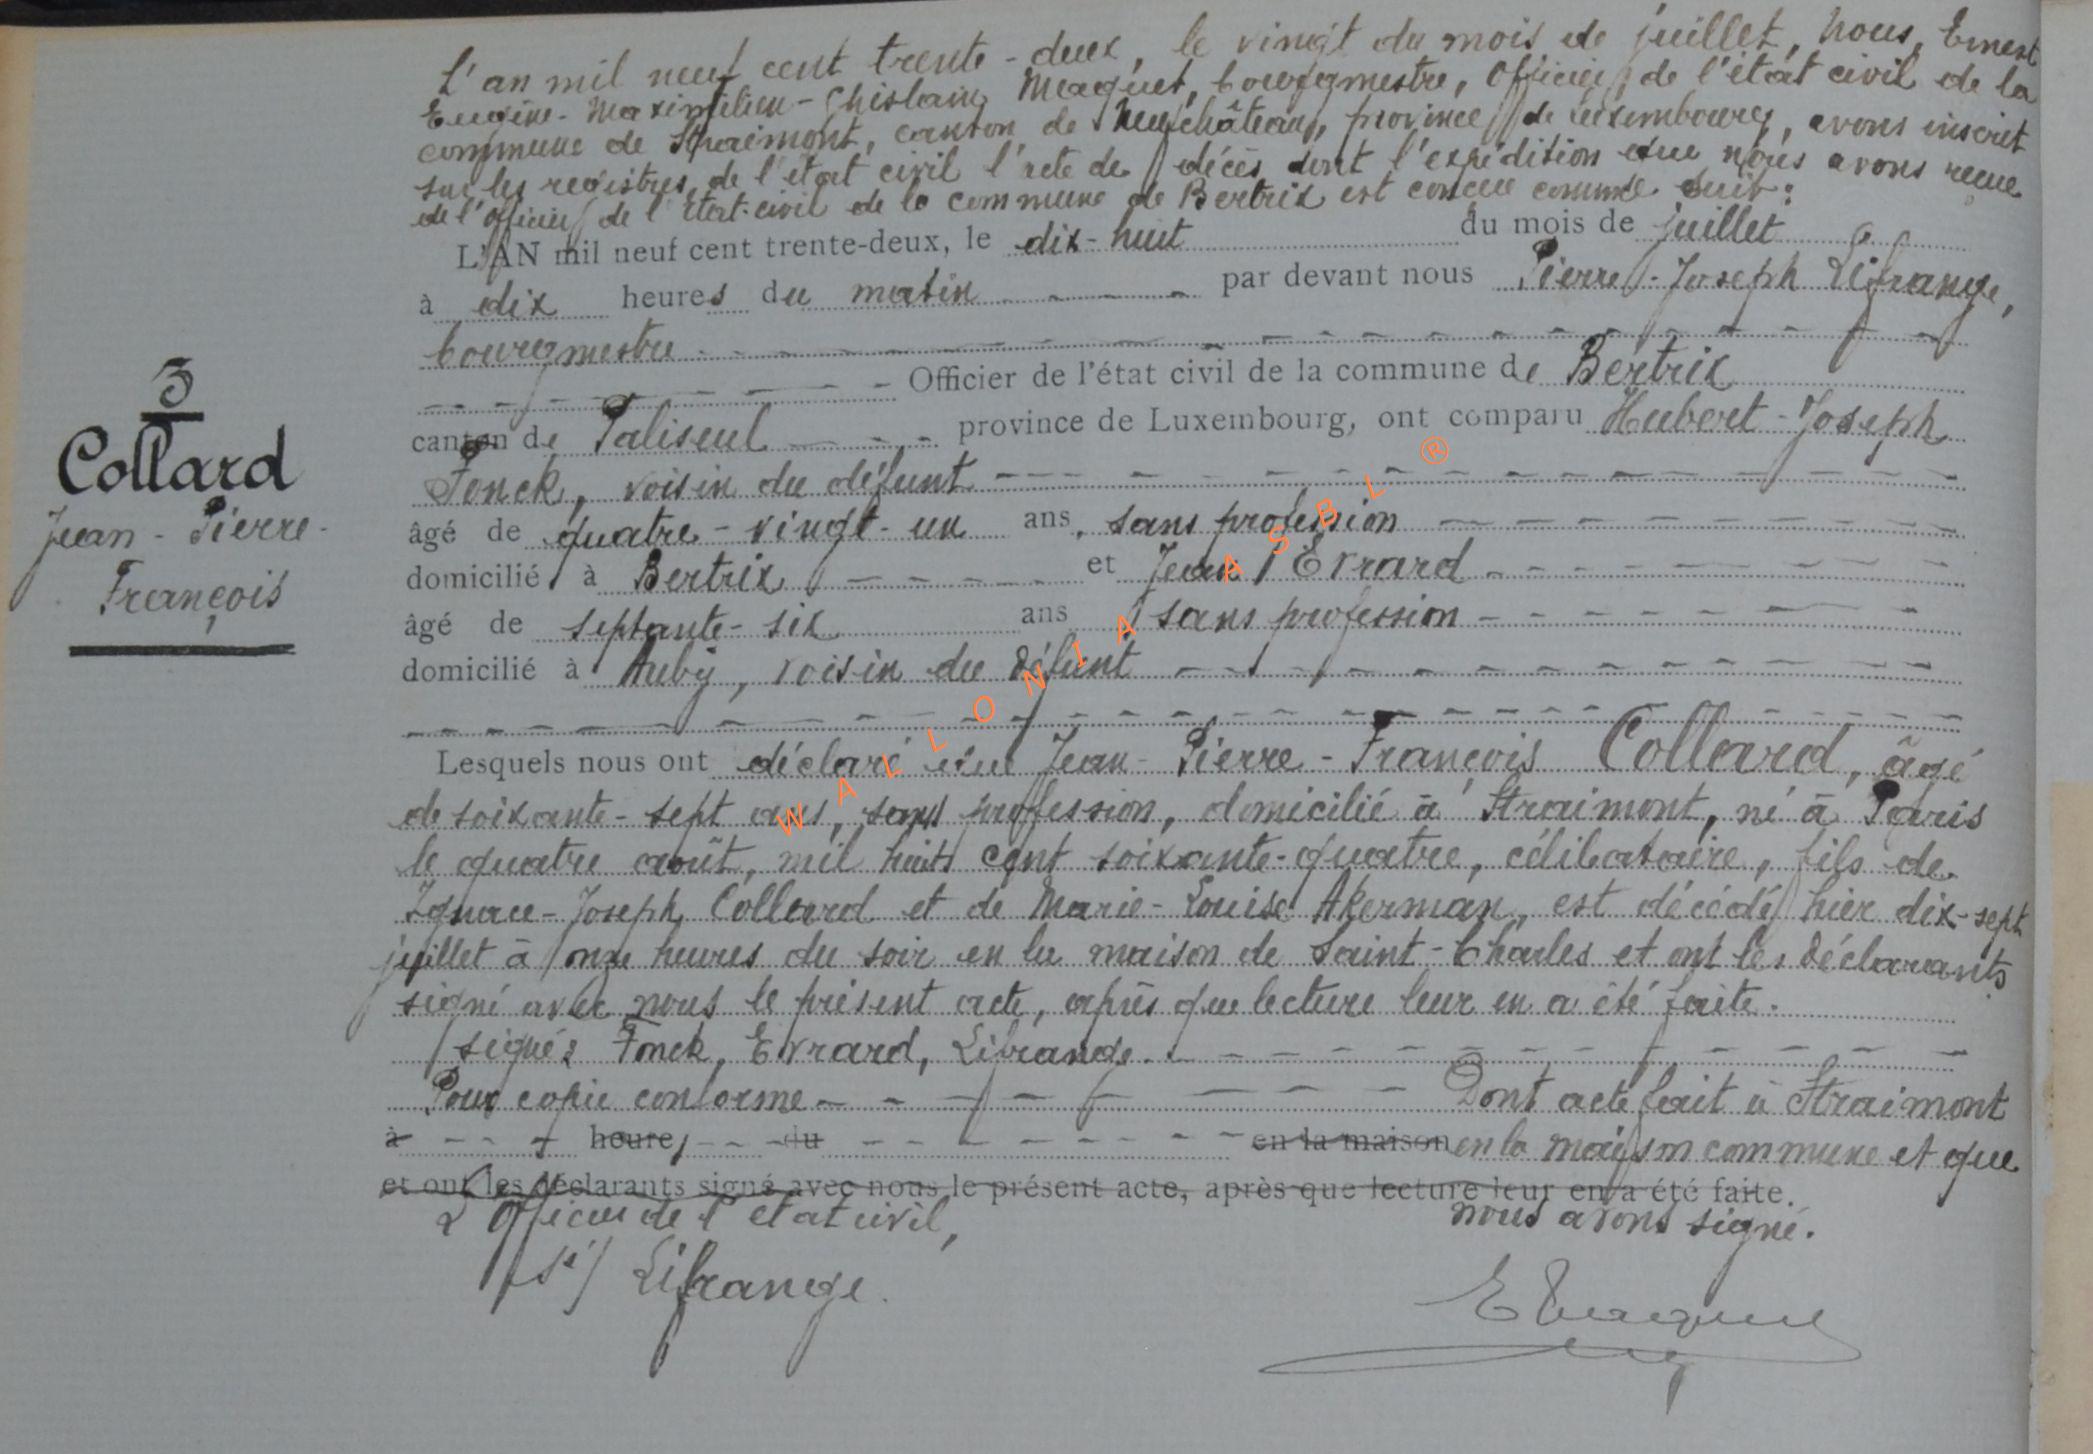 L'an mil neuf cent trente-deux, le vingt du mois de juillet, Nous, Ernest
Eugène-Maximilien-Ghislain Maquet, bourgmestre, Officier de l'état civil de la
commune de Straimont, canton de Neufchâteau, province de Luxembourg, avons inscrit
sur les registres de l'état civil l'acte de décès dont l'expédition que nous avons reçue
de l'officier de l'état-civil de la commune de Bertrix est conçue comme suit :
L'AN mil neuf cent trente-deux, le dix-huit du mois de juillet
à dix heures du matin par devant nous Pierre-Joseph Lifrange,
bourgmestre
Officier de l'état civil de la commune de Bertrix
canton de Paliseul province de Luxembourg, ont comparu Hubert-Joseph
Fonck, voisin du défunt
âgé de quatre-vingt-un ans, sans profession
domicilié à Bertrix et Jean Evrard
âgé de septante-six ans sans profession
domicilié à Auby, voisin du défunt
Lesquels nous ont déclaré que Jean-Pierre-François Collard, âgé
de soixante-sept ans, sans profession, domicilié à Straimont, né à Paris
le quatre août, mil huit cent soixante-quatre, célibataire, fils de
Ignace-Joseph Collard et de Marie-Louise Akerman, est décédé hier dix-sept
juillet à onze heures du soir en la maison de Saint-Charles et ont les déclarants
signé avec nous le présent acte, après que lecture leur en a été faite.
signés Fonck, Evrard, Lifrange.
Pour copie conforme Dont acte fait à Straimont
à heure, du en la maison en la maison commune et que
et ont les déclarants signé avec nous le présent acte, après que lecture leur en a été faite.
L'Officier de l'état civil, nous avons signé.
(sé) Lifrange.
E Maquet
3
Collard
Jean-Pierre-
François
WALLONIA ASBL ®